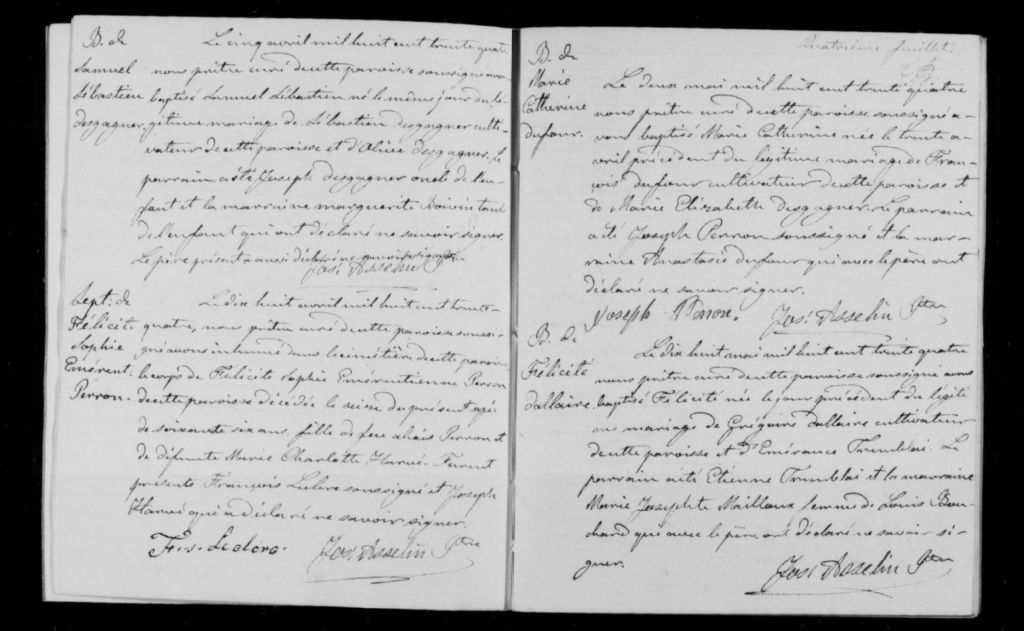 B. de
Samuel
Sébastien
desgagner.
Le cinq avril mil huit cent trente quatre
nous prêtre curé de cette paroisse soussigné avons
baptisé Samuel Sébastien né le même jour du lé-
gitime mariage de Sébastien desgagner culti-
vateur de cette paroisse et d'Olive desgagner. Le
parrain a été Joseph desgagner oncle de l'en-
fant et la marraine marguerite Boivin tante
de l'enfant qui ont déclaré ne savoir signer.
Le père présent a aussi déclaré ne savoir signer
Jos: Asselin Ptre
Sept: de
Félicité
Sophie
Emérent:
Perron.
Le dix huit avril mil huit cent trente-
quatre, nous prêtre curé de cette paroisse soussi-
gné avons inhumé dans le cimetière de cette paroisse
le corps de Félicité Sophie Emérentienne Perron
de cette paroisse décédée le seize du présent agée
de soixante six ans, fille de feu Perron et
de défunte Marie Charlotte Harvé. Furent
présents François Leclerc soussigné et Joseph
Harvé qui a déclaré ne savoir signer.
Frs. Leclerc. Jos: Asselin Ptre
Quatrième feuillet.
B. de
Marie
Catherine
dufour.
Le deux mai mil huit cent trente quatre
nous prêtre curé de cette paroisse soussigné a-
vons baptisé Marie Catherine née le trente a-
vril précédent du légitime mariage de Fran-
çois dufour cultivateur de cette paroisse et
de Marie Elizabeth desgagner. Le parrain
a été Joseph Perron soussigné et la mar-
raine Anastasie dufour qui avec le père ont
déclaré ne savoir signer.
Joseph Perron. Jos: Asselin Ptre
B. de
Félicité
dallaire.
Le dix huit mai mil huit cent trente quatre
nous prêtre curé de cette paroisse soussigné avons
baptisé Félicité née le jour précédent du légiti
me mariage de Grégoire dallaire cultivateur
de cette paroisse et d'Emérance Tremblai. Le
parrain a été Etienne Tremblai et la marraine
Marie Josephte Mailloux femme de Louis Bou-
chard qui avec le père ont déclaré ne savoir si-
gner.
Jos: Asselin Ptre